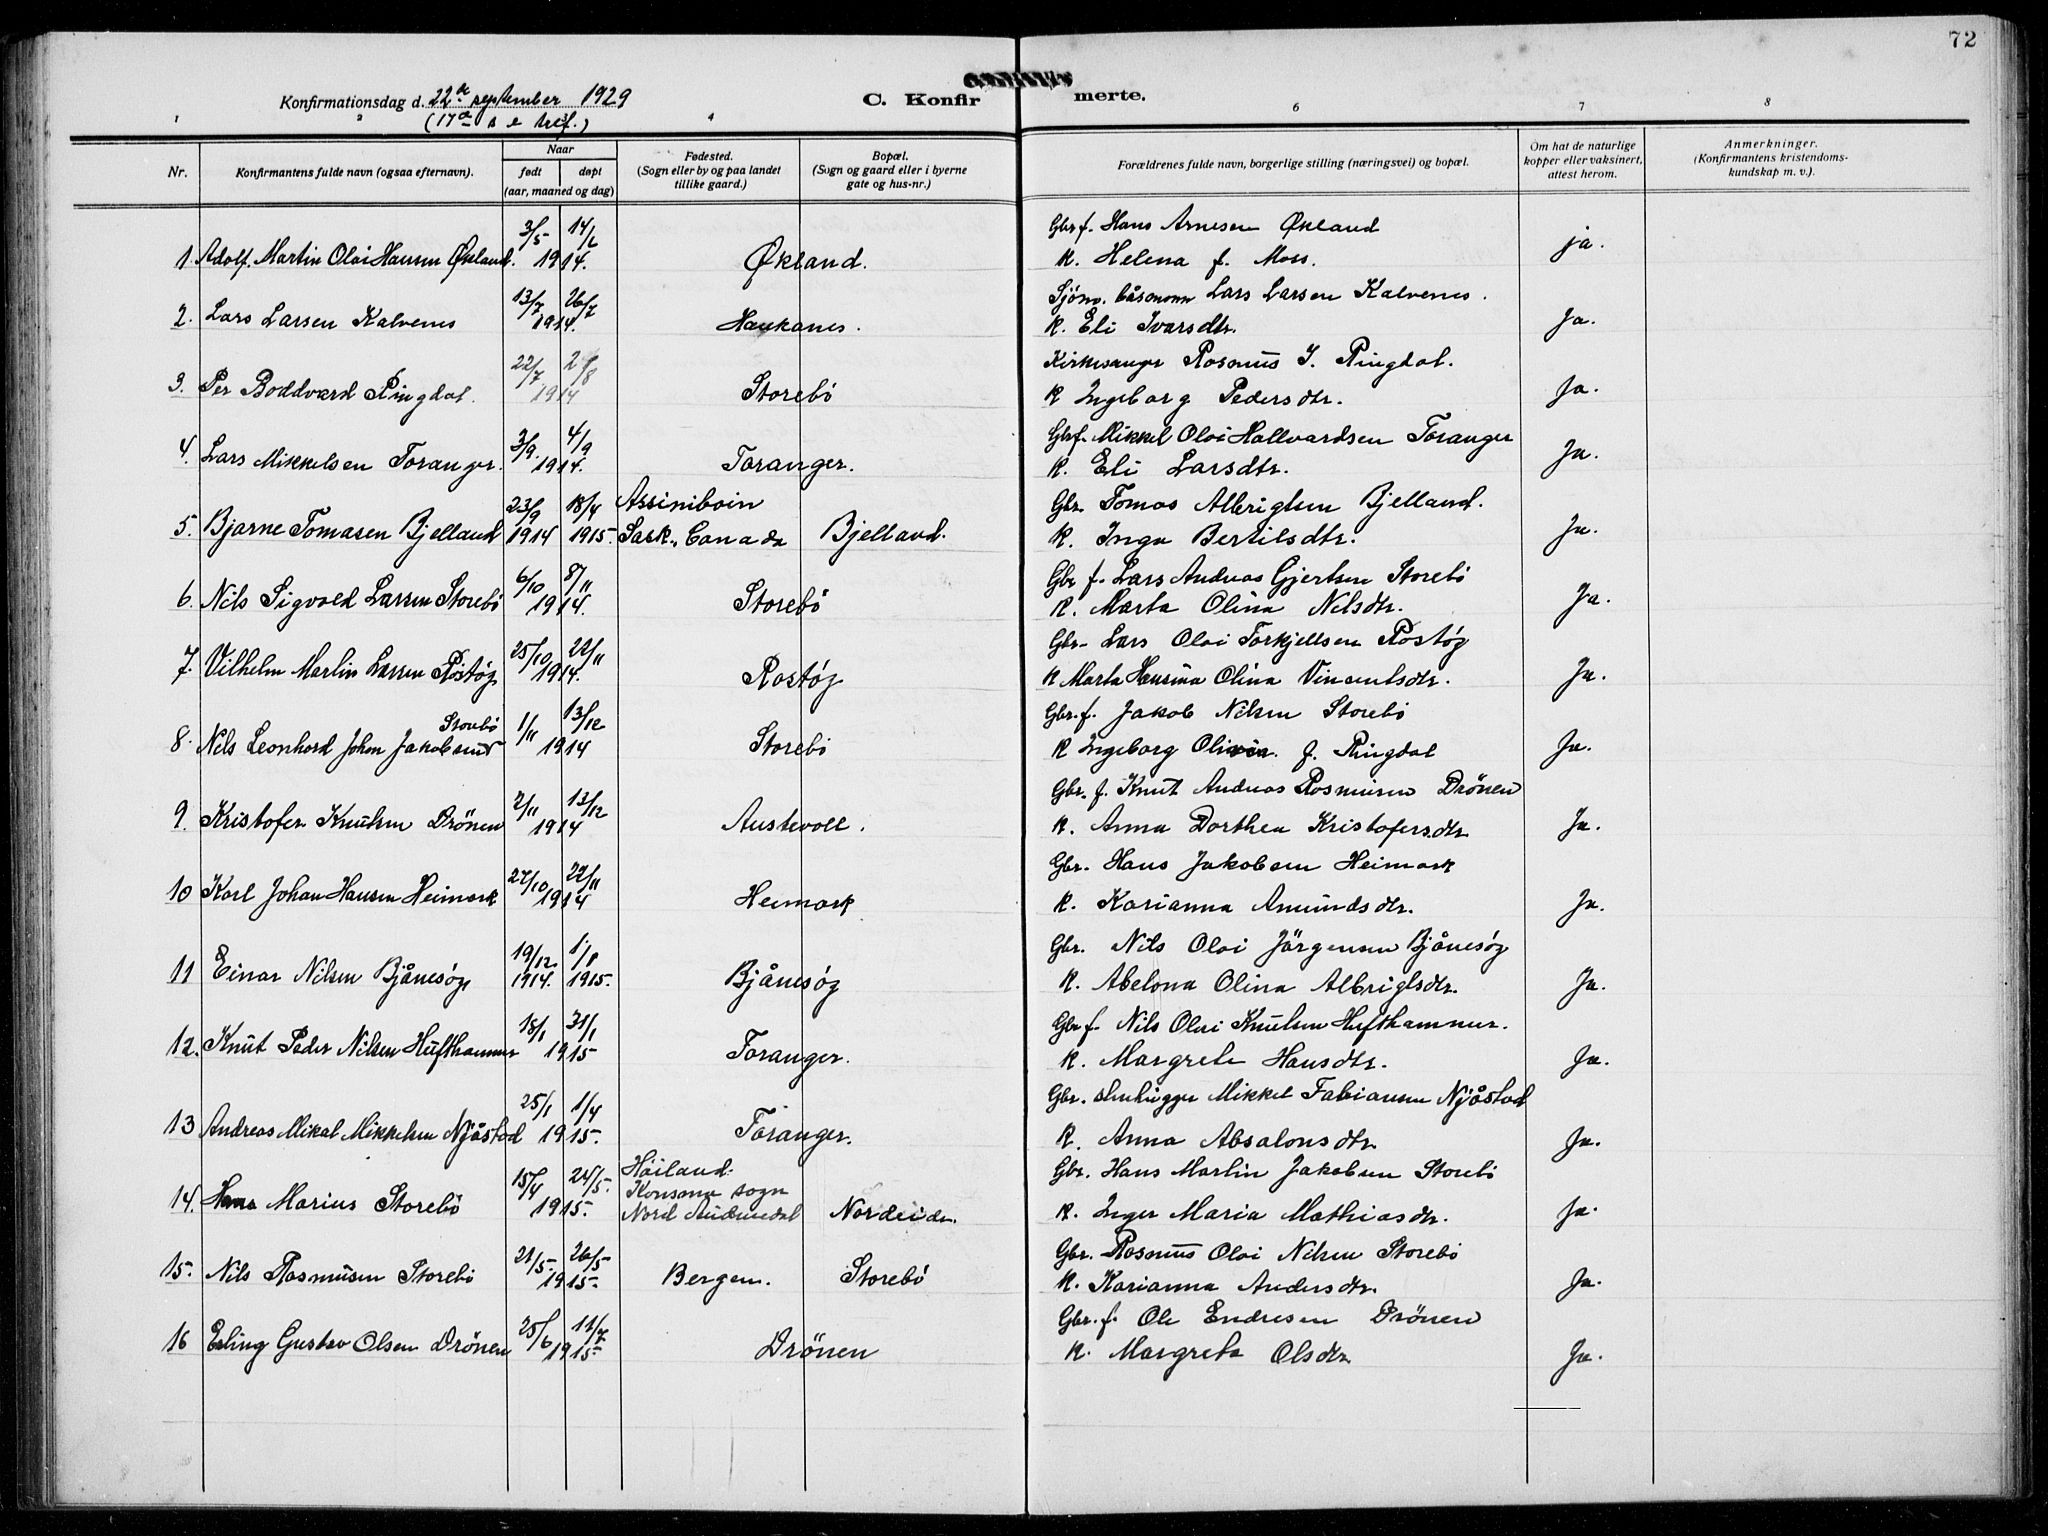 72
Konfirmationsdag d. 22de september 1929
(17de s e tref.)
C. Konfirmerte.
1 2 3 4 6 7 8
Nr.
Konfirmantens fulde navn (ogsaa efternavn).
Naar
født døpt
(aar, maaned og dag)
Fødested.
(Sogn eller by og paa landet
tillike gaard.)
Bopæl.
(Sogn og gaard eller i byerne
gate og hus-nr.)
Forældrenes fulde navn, borgerlige stilling (næringsvei) og bopæl.
Om hat de naturlige
kopper eller vaksinert,
attest herom.
Anmerkninger.
(Konfirmantens kristendoms-
kundskap m. v.).
3/5 14/6 Gbr f. Hans Arnesen Økland
1. Adolf Martin Olai Hansen Økland. 1914. Økland. K. Helena f. Moss. ja.
13/7 26/7 Sjöm. båsmann Lars Larsen Kalvenes.
2. Lars Larsen Kalvenes 1914. Haukanes. K. Eli Ivarsdtr. Ja.
22/7 2/8 Kirkesanger Rasmus I. Ringdal.
3. Per Boddvard Ringdal. 1914 Storebö K Ingeborg Pedersdtr. Ja.
3/9. 4/9 Gbrf. Mikkel Olai Hallvardsen Toranger
4. Lars Mikkelsen Toranger. 1914. Toranger. K. Eli Larsdtr. Ja.
23/9 18/4 Assiniboin Gbr. Tomas Albrigtsen Bjelland.
5. Bjarne Tomasen Bjelland 1914 1915. Sask., Canada Bjelland. K. Inga Bertilsdtr. Ja.
6/10 8/11 Gbr f. Lars Andreas Gjertsen Storebö
6. Nils Sigvald Larsen Storebö 1914. Storebö K. Marta Olina Nilsdtr. Ja.
25/10 22/11 Gbr. Lars Olai Torkjellsen Rostøy
7. Vilhelm Martin Larsen Rostøy 1914. Rostøy K Marta Hansina Olina Vincentsdtr. Ja.
Storebö 1/11 13/12 Gbr. f. Jakob Nilsen Storebö
8. Nils Leonhard Johan Jakobsen 1914 Storebö K Ingeborg Olivia f. Ringdal Ja.
2/11 13/12 Gbr. f. Knut Andreas Rasmusen Drönen
9. Kristofer Knutsen Drönen 1914 Austevoll. K. Anna Dorthea Kristofersdtr Ja.
27/10 22/11 Gbr. Hans Jakobsen Heimark
10 Karl Johan Hansen Heimark 1914 Heimark K. Karianna Amundsdtr. Ja.
19/12. 1/1 Gbr. Nils Olai Jörgensen Bjånesøy
11 Einar Nilsen Bjånesøy 1914. 1915. Bjånesøy K. Abelona Olina Albrigtsdtr. Ja.
18/1 31/1 Gbr f. Nils Olai Knutsen Hufthammer.
12. Knut Peder Nilsen Hufthammer 1915 Toranger. K. Margrete Hansdtr. Ja.
25/1 1/4 Gbr. stenhugger Mikkel Fabiansen Njåstad
13 Andreas Mikal Mikkelsen Njåstad 1915. Toranger. K. Anna Absalonsdtr. Ja.
15/4 24/5. Höiland. Gbr. Hans Martin Jakobsen Storebö
Konsmo sogn
14. Hans Marius Storebö 1915. Nord Audnedal Nordeide. K. Inger Maria Mathiasdtr. Ja.
21/5. 26/5 Gbr. Rasmus Olai Nilsen Storebö
15. Nils Rasmusen Storebö 1915. Bergen. Storebö K. Karianna Andersdtr. Ja.
25/6 11/7 Gbr. f. Ole Endresen Drönen
16 Erling Gustav Olsen Drönen 1915 Drönen K. Margreta Olsdtr. Ja.